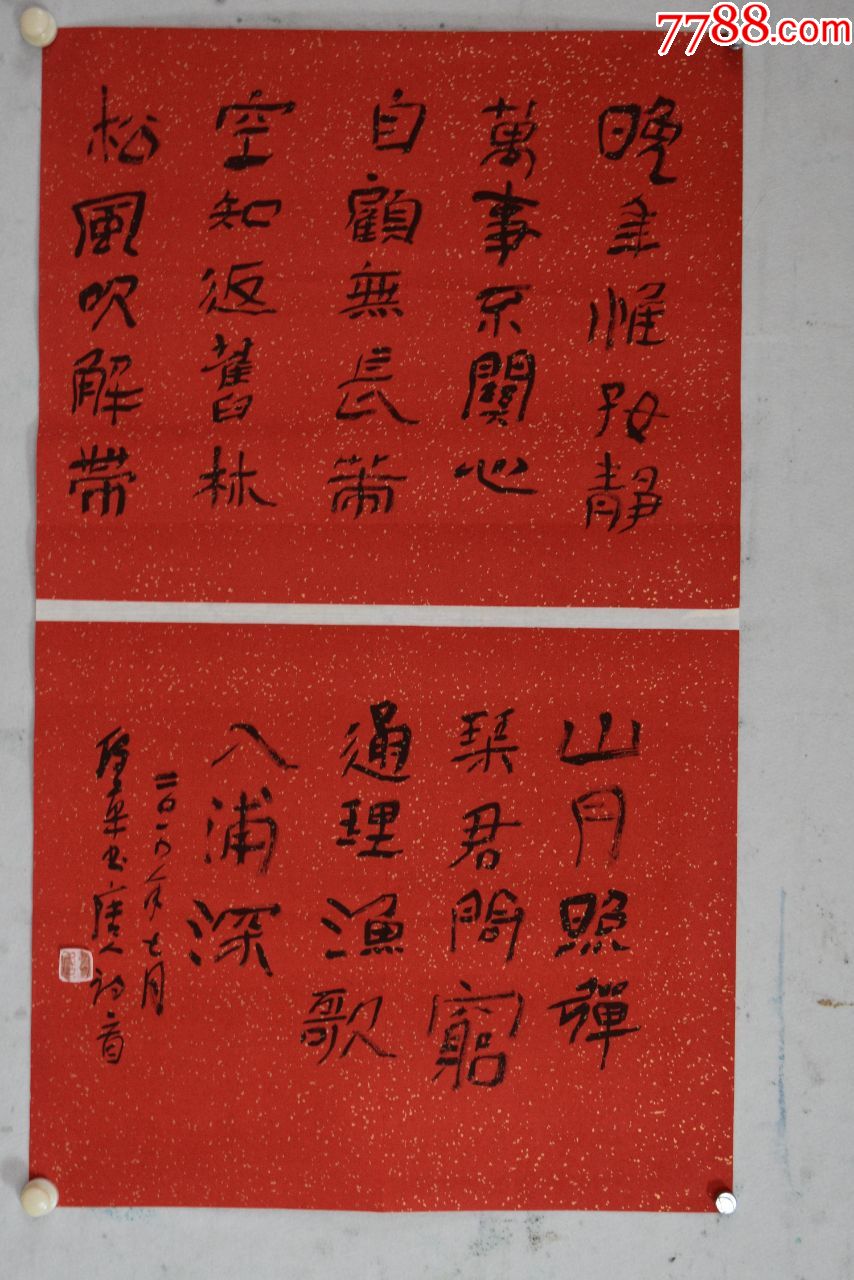 7788.com
晚年惟好靜
萬事不關心
自顧無長策
空知返舊林
松風吹解帶
山月照彈
琴君問窮
通理漁歌
入浦深
二〇一八年七月
书唐人诗首